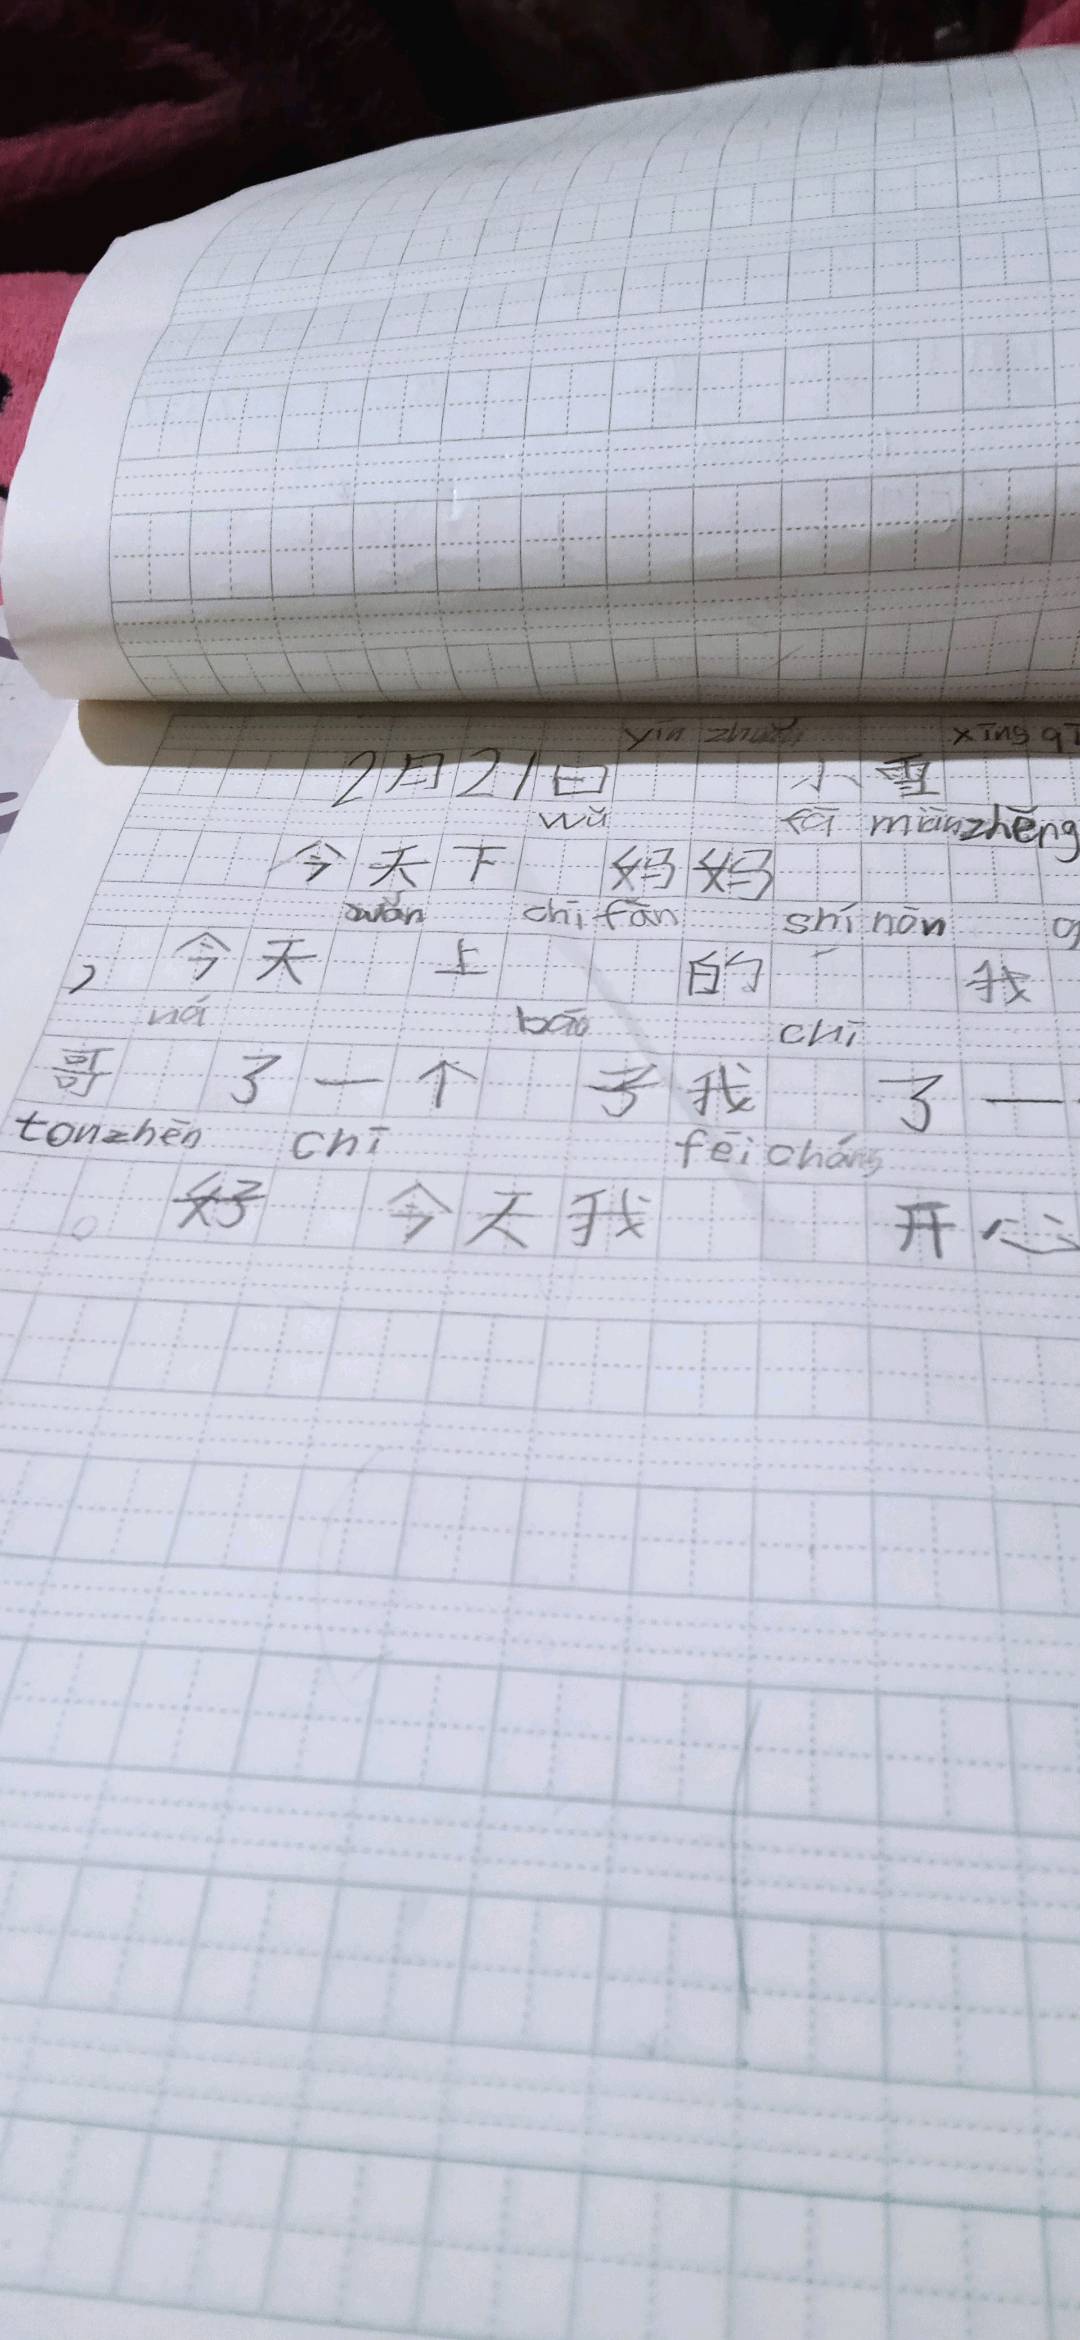 yīn zhuǎn xīng qī
2月21日 小雪
wǔ fā miàn zhěng
今天下 妈妈
wǎn chī fàn shí hōn
，今天 上 的 我
ná bāo chī
哥 了一个 子我 了一
tonzhēn chī fēi cháng
。 好 今天我 开心